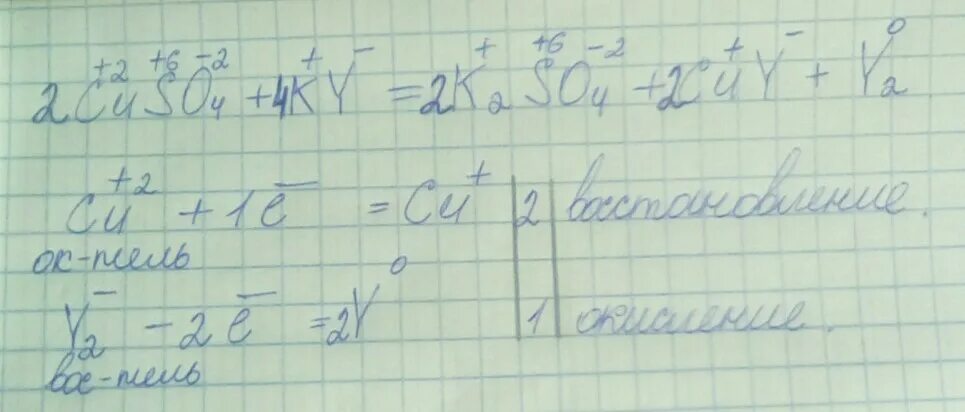 2Cu⁺²S⁺⁶O₄⁻² + 4K⁺Y⁻ = 2K₂⁺S⁺⁶O₄⁻² + 2Cu⁺Y⁻ + Y₂⁰
Cu⁺² + 1e̅ = Cu⁺ | 2 | восстановление.
ок-тель
Y₂⁻ − 2e̅ = 2Y⁰ | 1 | окисление.
вос-тель